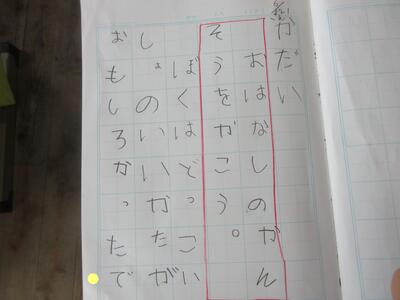 かだい
おはなしのかん
そうをかこう。
ぼくはどっこい
しょのいいかたが
おもしろかったで